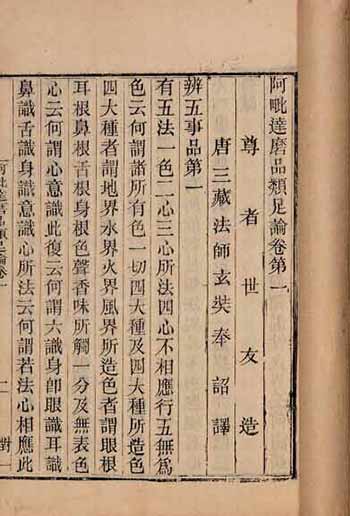 阿毗達磨品類足論卷第一
尊者世友造
唐三藏法師玄奘奉詔譯
辨五事品第一
有五法一色二心三心所法四心不相應行五無爲
色云何謂諸所有色一切四大種及四大種所造色
四大種者謂地界水界火界風界所造色者謂眼根
耳根鼻根舌根身根色聲香味所觸一分及無表色
心云何謂心意識此復云何謂六識身卽眼識耳識
鼻識舌識身識意識心所法云何謂若法心相應此